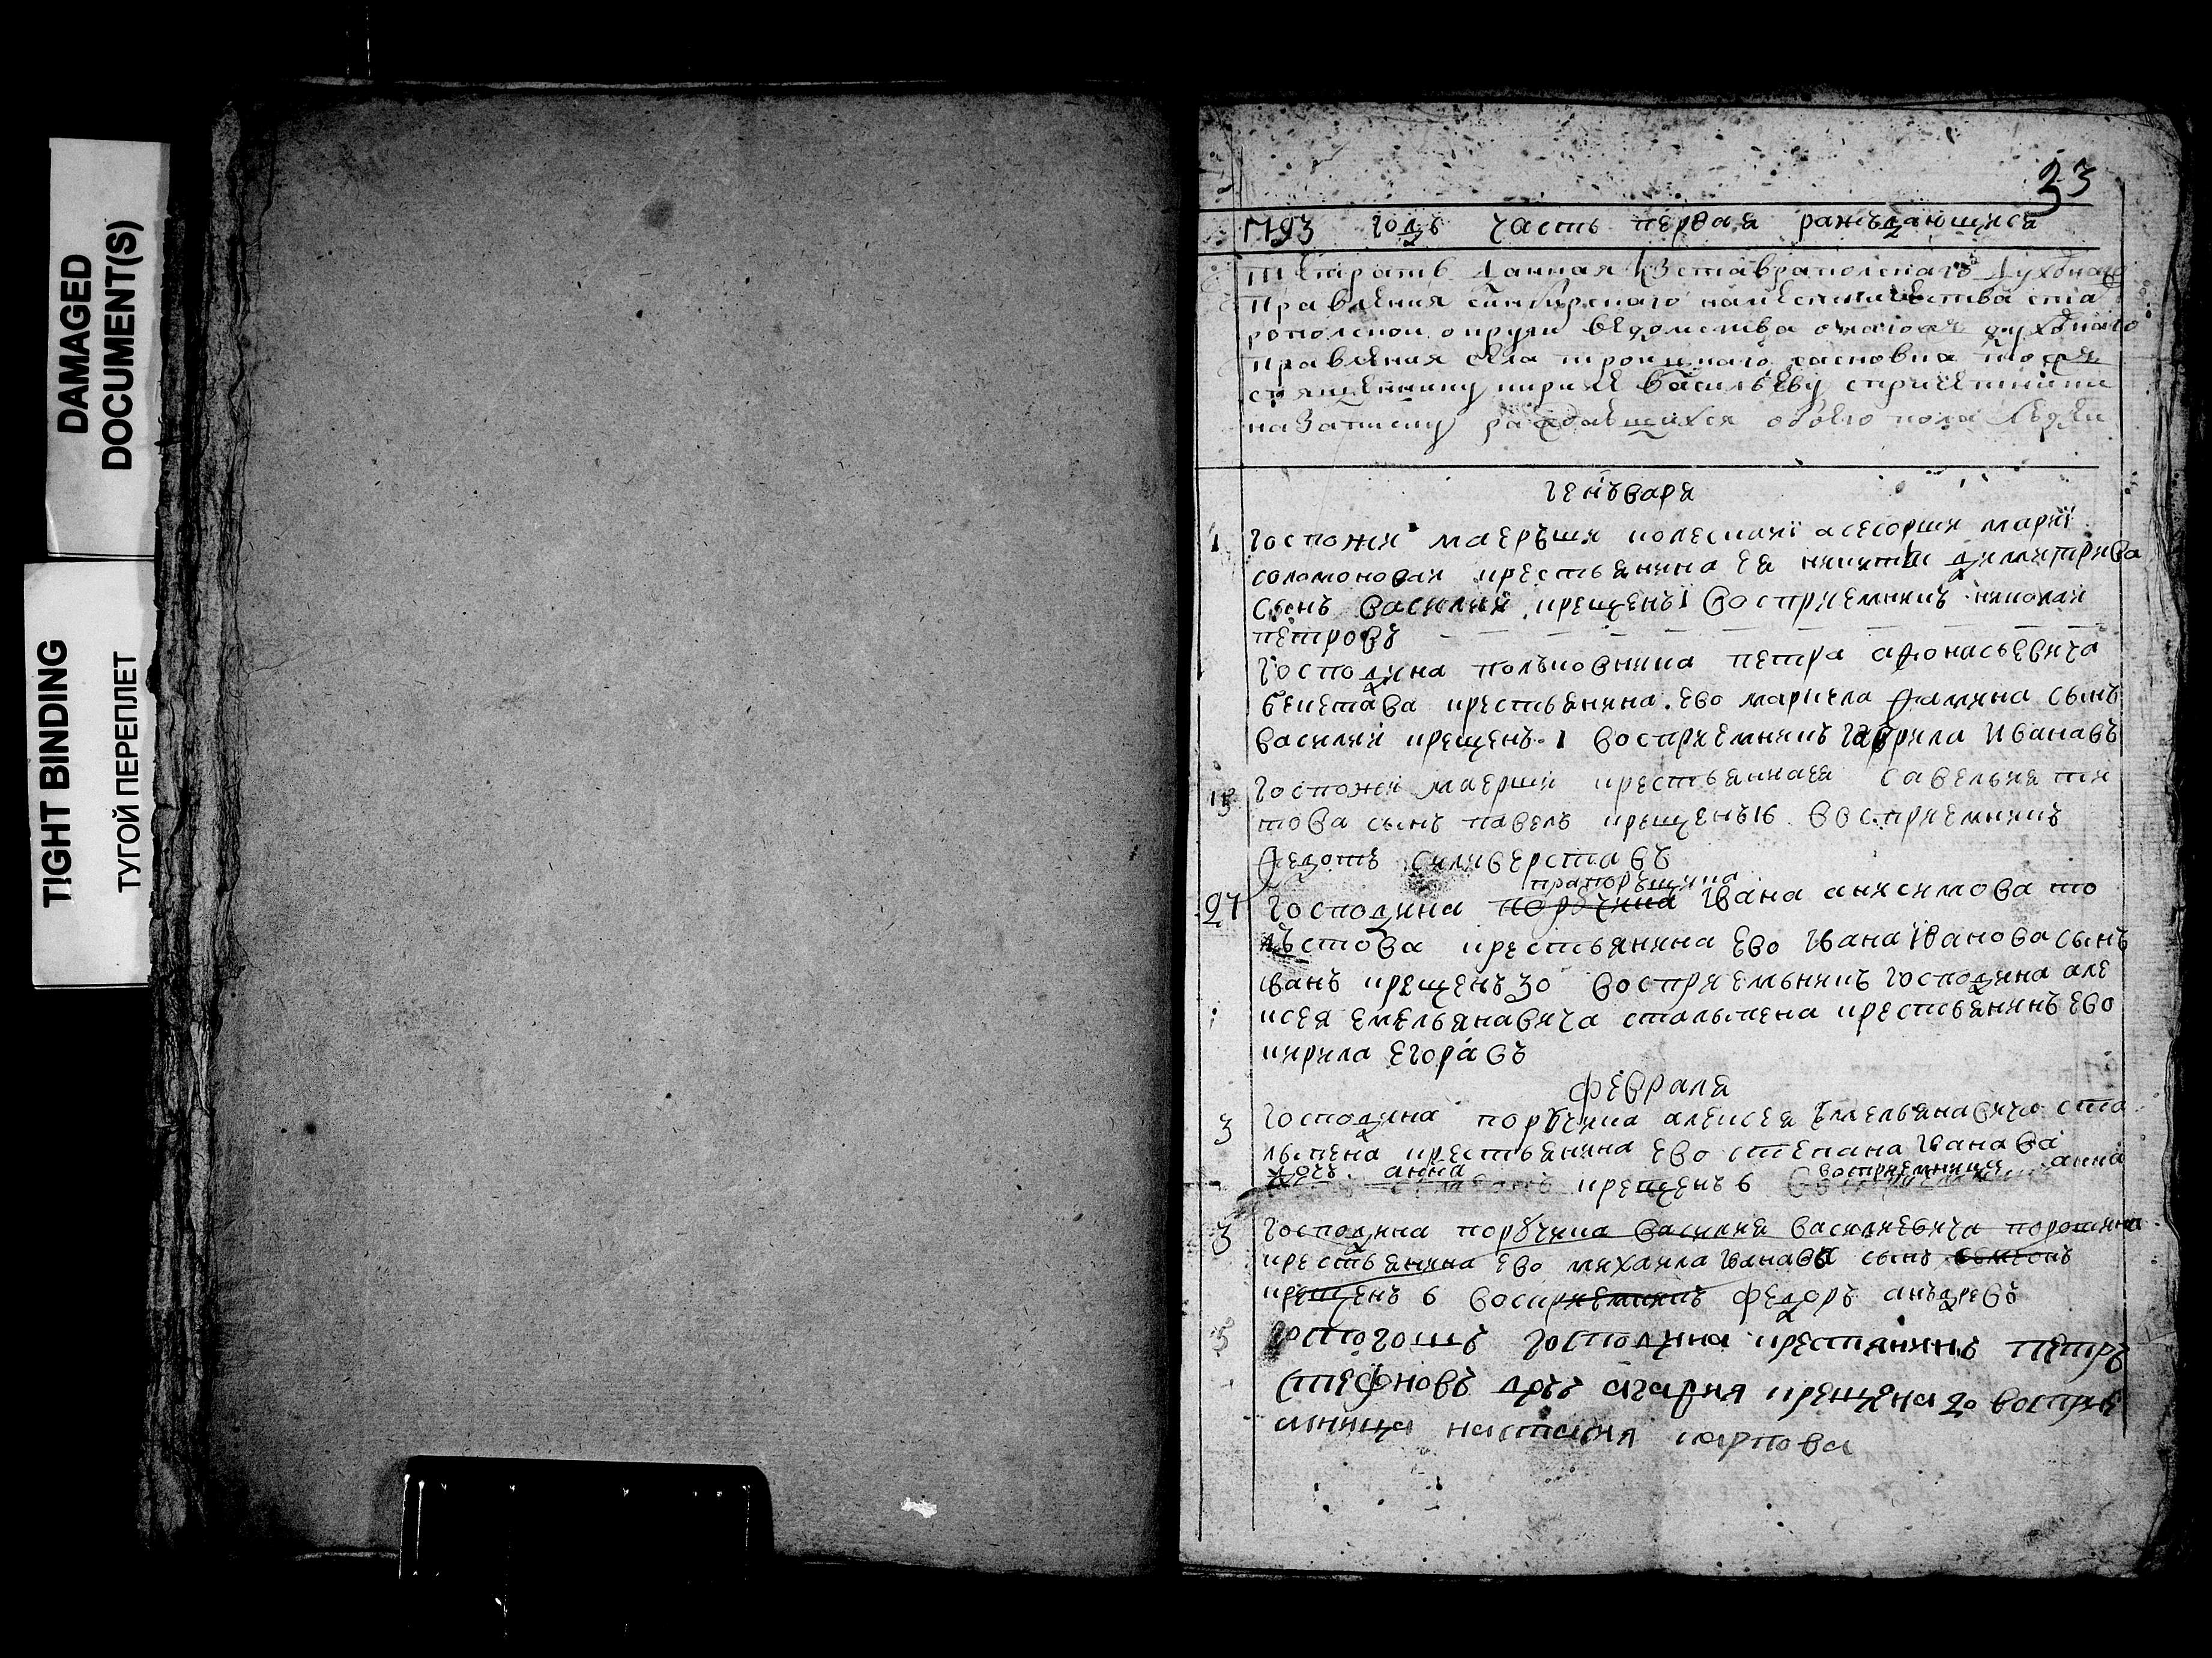 DAMAGED
DOCUMENT(S)
TIGHT BINDING
ТУГОЙ ПЕРЕПЛЕТ
33
1793 годъ часть первая раждающихся
Тетрать данная из ставрапольскаго духовнаго
правления синбирскаго наместничества ста
ропольской округи ведомства онагожъ духовнаго
правления села троицкаго
священнику кириле васильеву спричетники
на записку раждающихся обоего пола людеи
генъваря
1 госпожи маеръши колескаи асесорши марїи
соломоноваи крестьянина ея никиты димитрива
сынъ василии крещенъ 1 восприемникъ николаи
петровъ
господина полъковника петра афонасьевича
бекетава крестьянина ево маркела фамина сынъ
василии крещенъ 1 восприемникъ гаврила иванавъ
15 госпожи маерши крестьянинаея савелья ти
това сынъ павелъ крещенъ 16 восприемникъ
федотъ силиверставъ
прапоръщика
27 господина поручика ївана анисимова то
лъстова крестьянина ево ївана їванова сынъ
їванъ крещенъ 30 восприемьникъ господина але
ксея емельянавича сталыпена крестьянинъ ево
кирила егоравъ
февраля
3 господина поручика алексея емельянавича ста
лыпена крестьянина ево степана їванава
дочь анна крещенъ 6 восприемница анна
3 господина поручика василия василиевича порошина
крестьянина ево михаила їванава сынъ семионъ
крещенъ 6 восприемникъ федоръ анъдревъ
5 тогошъ господина крестянинъ петръ
стефоновъ дочь агафия крещена 20 воспрїе
мница настасия карпова